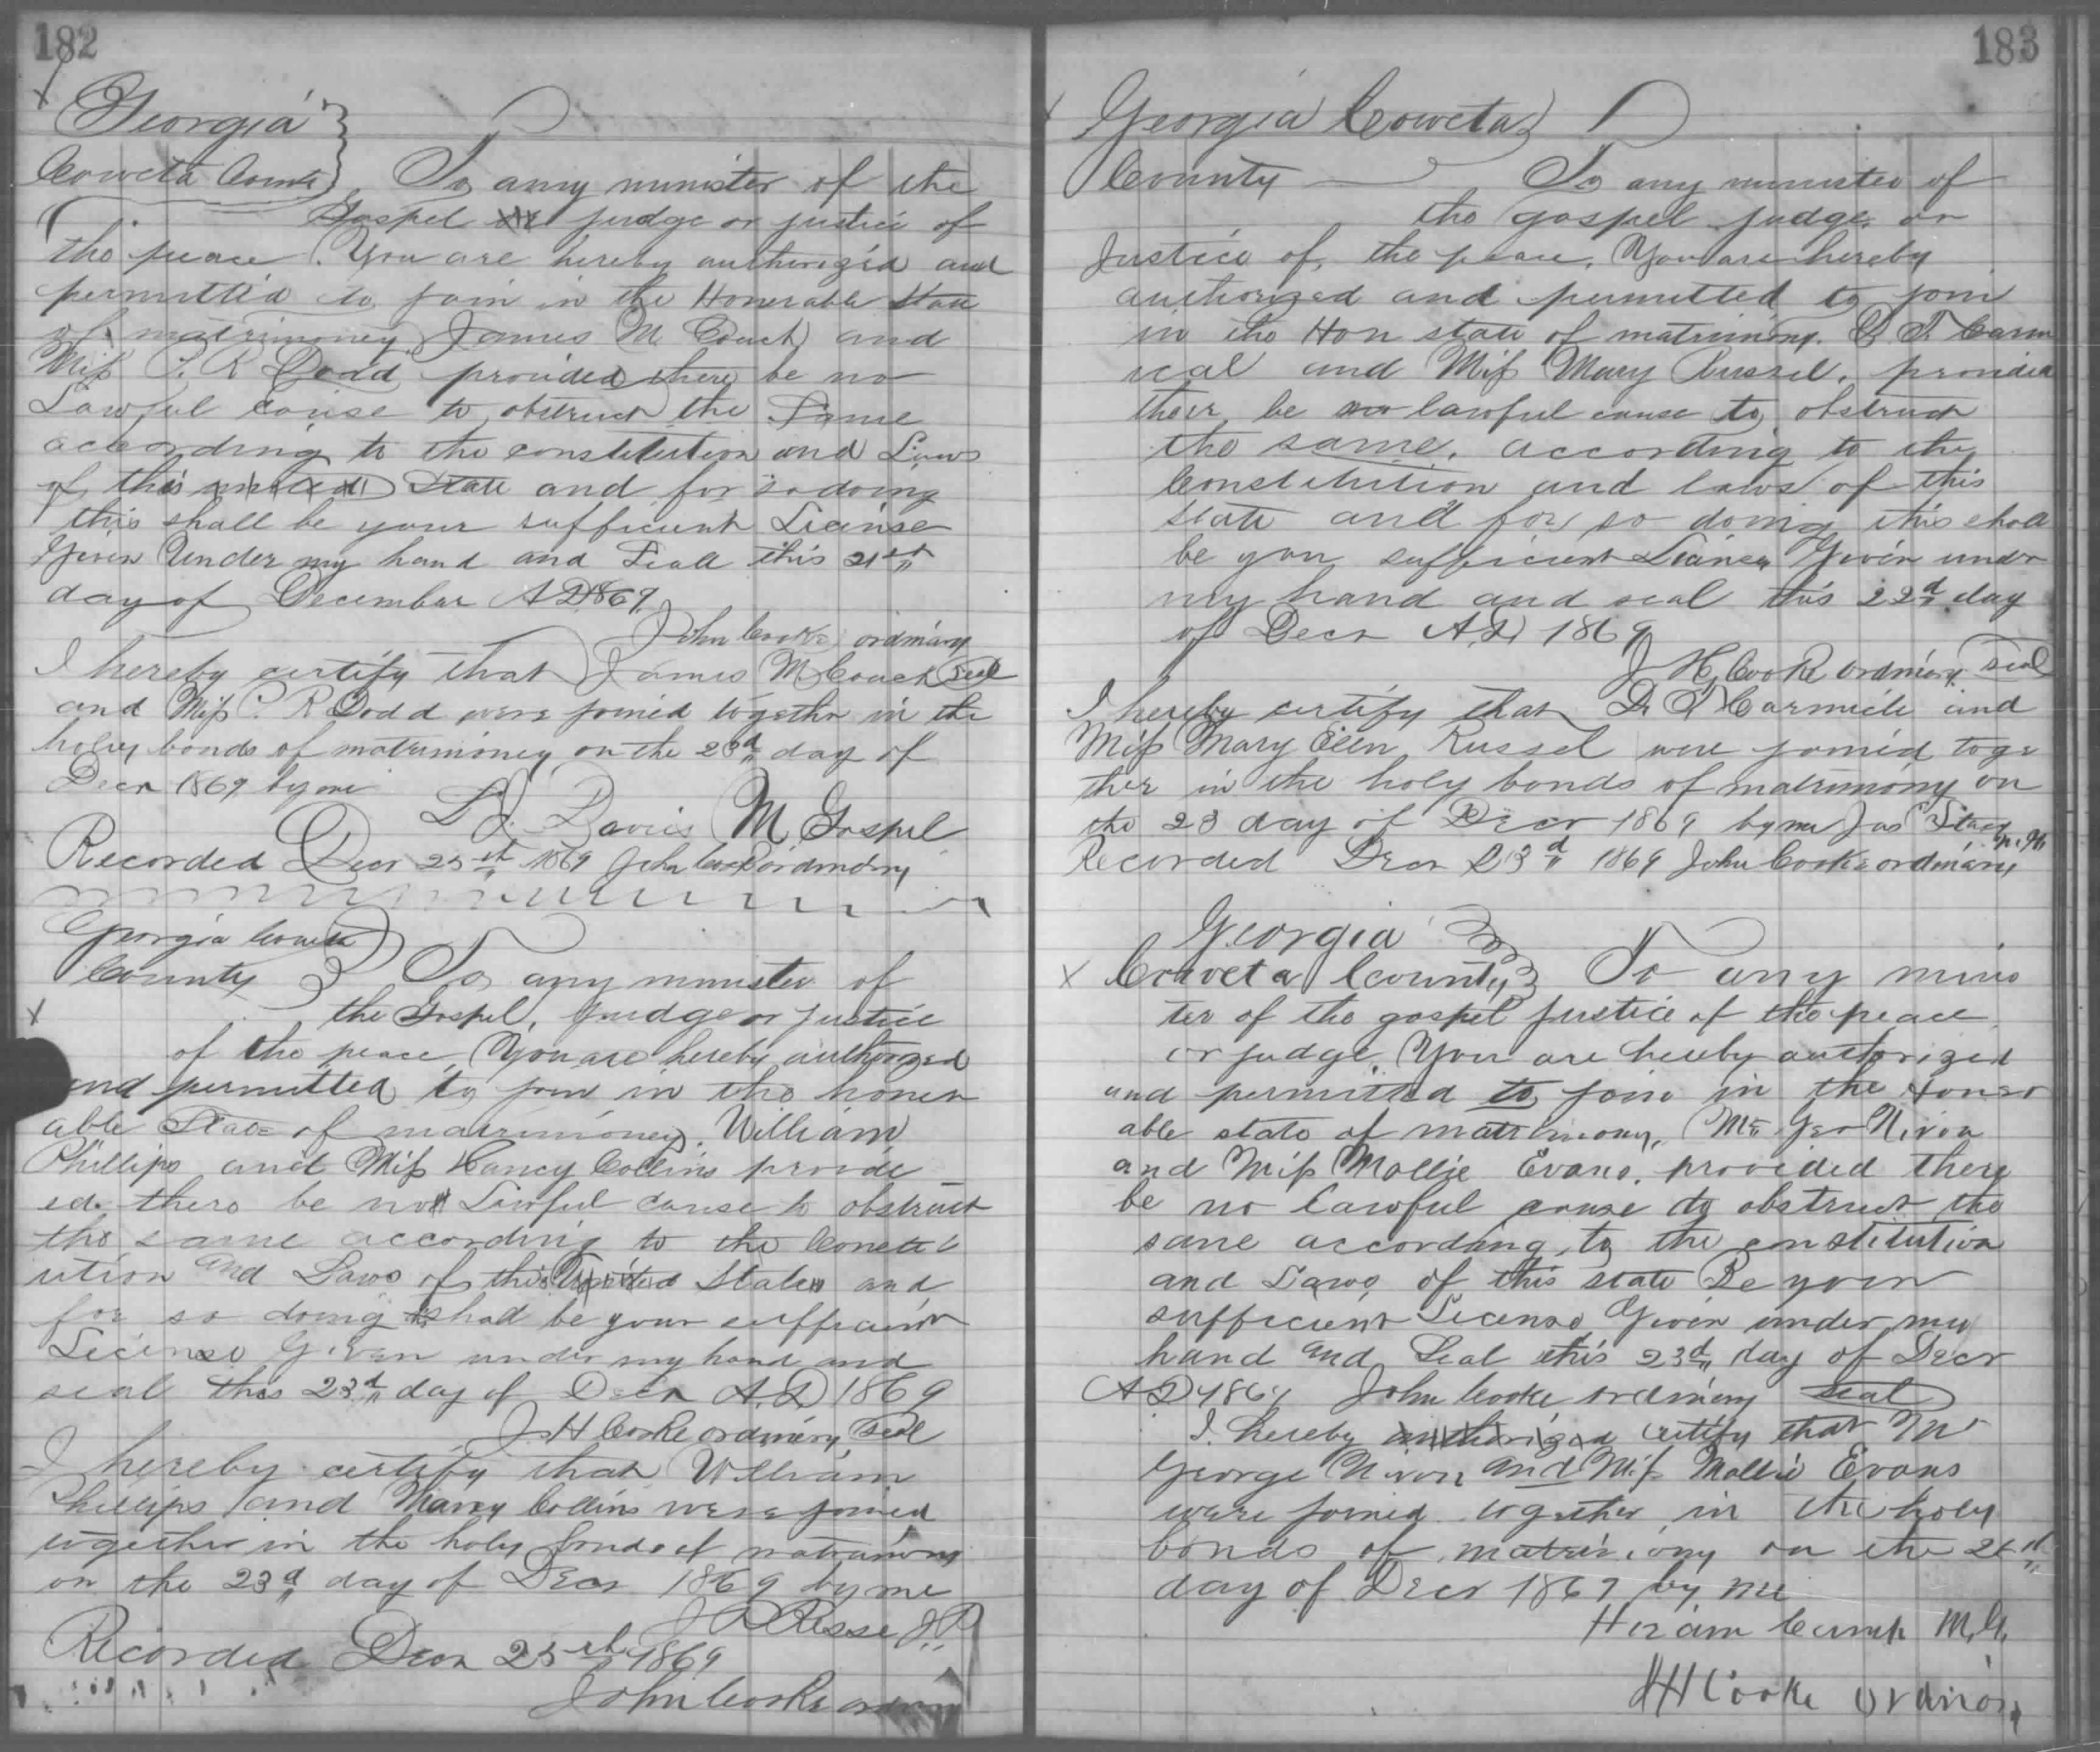 182
Georgia
Coweta County To any minister of the
Gospel judge or justice of
the peace. You are hereby authorized and
permitted to join in the Honerable State
of matrimoney James M Couch and
Miss R Dodd provided there be no
Lawful cause to obstruct the Same
according to the constitution and Laws
of this State and for so doing
this shall be your sufficient License
Given Under my hand and Seall this 21st
day of December AD 1869
John Cooke ordinary
I hereby certify that James M Couch Seal
and Miss R Dodd were joined together in the
holy bonds of matrimoney on the 23d day of
Decr 1869 by me
Davis M Gospel
Recorded Decr 25th 1869 John Cooke ordinary
Georgia Coweta
County To any minister of
the Gospel, Judge or justice
of the peace You are hereby authorized
and permitted to join in the honer
able State of matrimoney. William
Phillips and Miss Nancy Collins provid
ed. there be no Lawful cause to obstruct
the same according to the Constit
ution and Laws of this State and
for so doing shal be your sufficient
License Given under my hand and
seal this 23d day of Decr A.D 1869
J H Cooke ordinary Seal
I hereby certify that William
Phillips and Nancy Collins were joined
together in the holy bonds of matrimony
on the 23d day of Decr 1869 by me
J P
Recorded Decr 25th 1869
John Cooke ordinary
183
Georgia Coweta
County To any minister of
the gospel judge or
Justice of the peace, You are hereby
authorized and permitted to join
in the Hon state of matrimony. T. Carm
ical and Miss Mary Russel, provided
their be no lawful cause to obstruct
the same. according to the
Constitution and laws of this
state and for so doing this shall
be your sufficient License Given under
my hand and seal this 22d day
of Decr A.D 1869
J H Cooke ordinary seal
I hereby certify that T Carmicle and
Miss Mary Ellen Russel were joined toge
ther in the holy bonds of matrimony on
the 23 day of Decr 1869 by me Jas Stacy
Recorded Decr 23d 1869 John Cooke ordinary
Georgia
Coweta County To any minis
ter of the gospel justice of the peace
or judge. You are hereby authorized
and permitted to join in the Honor
able state of matrimony, Mr Geo Nixon
and Miss Mollie Evans. provided there
be no lawful cause to obstruct the
same according to the constitution
and Laws of this state Be your
sufficient License Given under my
hand and Seal this 23d day of Decr
AD 1869 John Cooke ordinary seal
I hereby certify that Mr
George Nixon and Miss Mollie Evans
were joined together in the holy
bonds of matrimony on the
day of Decr 1869 by me
Hiram Camp M.G.
J H Cooke ordinary